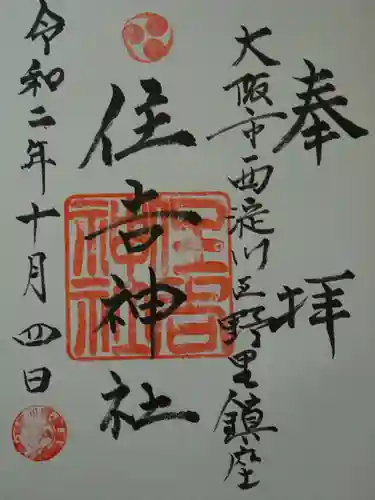 奉拝
大阪市西淀川区野里鎮座
住吉神社
令和二年十月四日
住吉神社